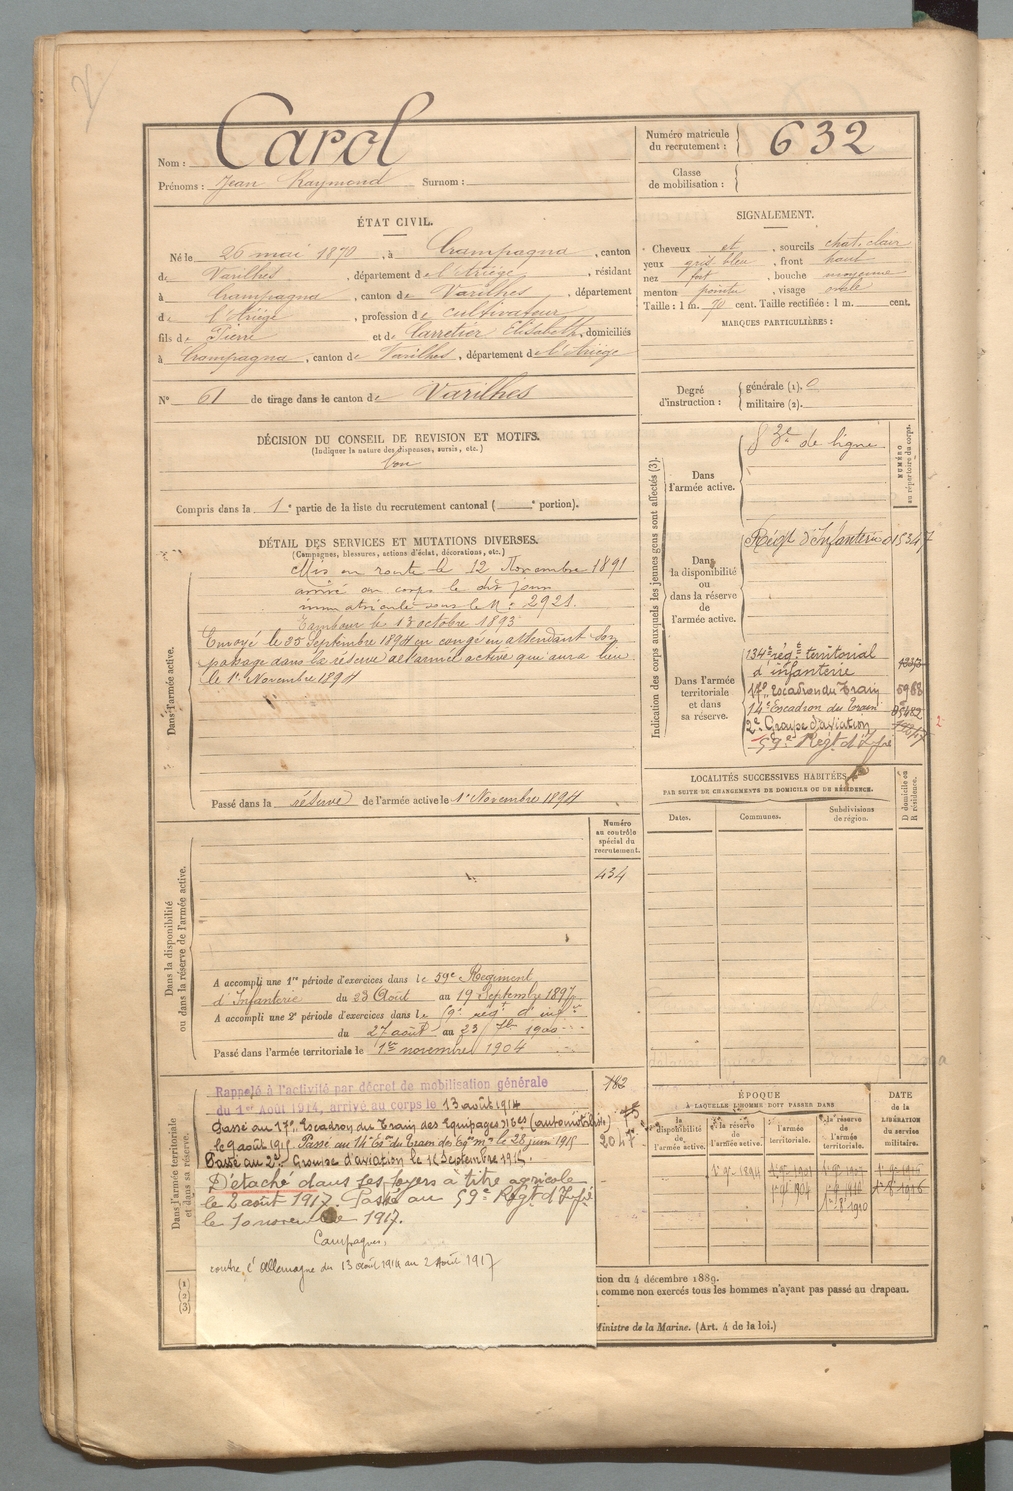 Nom : Carol
Prénoms : Jean Raymond Surnom :
Numéro matricule
du recrutement : 632
Classe
de mobilisation :
ÉTAT CIVIL.
Né le 26 mai 1870, à Crampagna, canton
de Varilhes, département de l'Ariège, résidant
à Crampagna, canton de Varilhes, département
de l'Ariège, profession de cultivateur
fils de Pierre et de Carretier Elisabeth, domiciliés
à Crampagna, canton de Varilhes, département de l'Ariège
N° 61 de tirage dans le canton de Varilhes
SIGNALEMENT.
Cheveux et, sourcils chat. clair
yeux gris bleu, front haut
nez fort, bouche moyenne
menton pointu, visage ovale
Taille : 1 m. 70 cent. Taille rectifiée : 1 m. cent.
MARQUES PARTICULIÈRES :
Degré
d'instruction :
générale (1).
militaire (2).
DÉCISION DU CONSEIL DE REVISION ET MOTIFS.
(Indiquer la nature des dispenses, sursis, etc.)
bon
Compris dans la 1e partie de la liste du recrutement cantonal ( e portion).
DÉTAIL DES SERVICES ET MUTATIONS DIVERSES.
(Campagnes, blessures, actions d'éclat, décorations, etc.)
Dans l'armée active.
Mis en route le 12 Novembre 1891
arrivé au corps le dit jour
immatriculé sous le N° 2921.
Tambour le 13 octobre 1893
Envoyé le 25 Septembre 1894 en congé en attendant son
passage dans la réserve de l'armée active qui aura lieu
le 1er Novembre 1894
Passé dans la réserve de l'armée active le 1er Novembre 1894
Indication des corps auxquels les jeunes gens sont affectés (3).
NUMÉRO
au répertoire du corps.
Dans
l'armée active.
83e de ligne
Dans
la disponibilité
ou
dans la réserve
de
l'armée active.
Régt d'Infanterie 015347
Dans l'armée
territoriale
et dans
sa réserve.
134e régnt territorial
d'infanterie
17e Escadron du Train 5968
14e Escadron du Train
2e Groupe d'aviation
59e Régt d'Infie
LOCALITÉS SUCCESSIVES HABITÉES
PAR SUITE DE CHANGEMENTS DE DOMICILE OU DE RÉSIDENCE.
Dates.
Communes.
Subdivisions
de région.
D domicile ou
R résidence.
Numéro
au contrôle
spécial du
recrutement.
434
Dans la disponibilité
ou dans la réserve de l'armée active.
A accompli une 1re période d'exercices dans le 59e Régiment
d'Infanterie du 23 Août au 19 Septembre 1897
A accompli une 2e période d'exercices dans le 59e régt d'infie
du 27 août au 23 7bre 1900
Passé dans l'armée territoriale le 1er novembre 1904
Dans l'armée territoriale
et dans sa réserve.
Rappelé à l'activité par décret de mobilisation générale
du 1er Août 1914, arrivé au corps le 13 août 1914
Passé au 17e Escadron du Train des Equipages Mres (automobiliste)
le 9 août 1915 Passé au 14e Eson du Train des Eqges mres le 28 juin 1915
Passé au 2e Groupe d'aviation le 16 Septembre 1915.
Détaché dans ses foyers à titre agricole
le 2 août 1917. Passé au 59e Régt d'Infie
le 10 novembre 1917.
Campagnes,
contre l'Allemagne du 13 août 1914 au 2 Août 1917
182
75
2047
ÉPOQUE
À LAQUELLE L'HOMME DOIT PASSER DANS
la
disponibilité
de
l'armée active.
la réserve
de
l'armée active.
l'armée
territoriale.
la réserve
de
l'armée
territoriale.
DATE
de la
LIBÉRATION
du service
militaire.
(1)
(2)
(3)
tion du 4 décembre 1889.
comme non exercés tous les hommes n'ayant pas passé au drapeau.
Ministre de la Marine. (Art. 4 de la loi.)